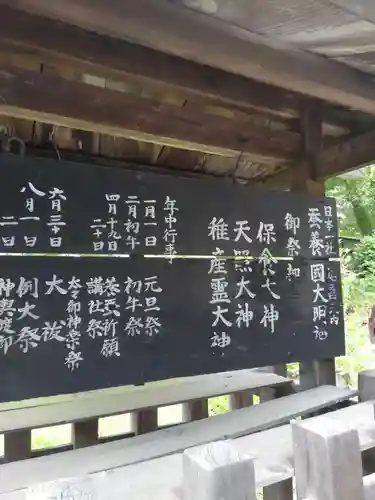 日本三社
蚕養國大明神
御祭神
保食大神
天照大神
稚産霊大神
年中行事
一月一日 元旦祭
二月初午 初午祭
四月十九日 蚕養祈願
二十日 講社祭
太々御神楽祭
六月三十日 大祓
八月一日 例大祭
二日 神輿渡御